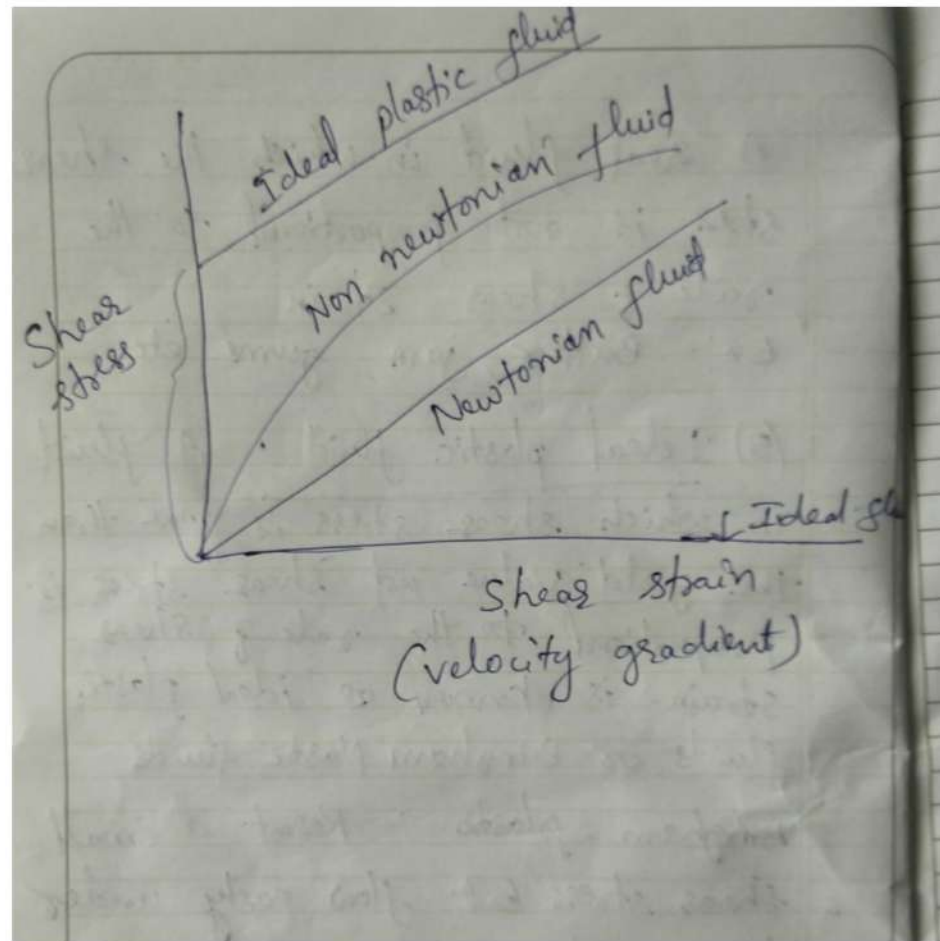 Ideal plastic fluid
Non newtonian fluid
Newtonian fluid
Shear
stress
Ideal
Shear strain
(velocity gradient)